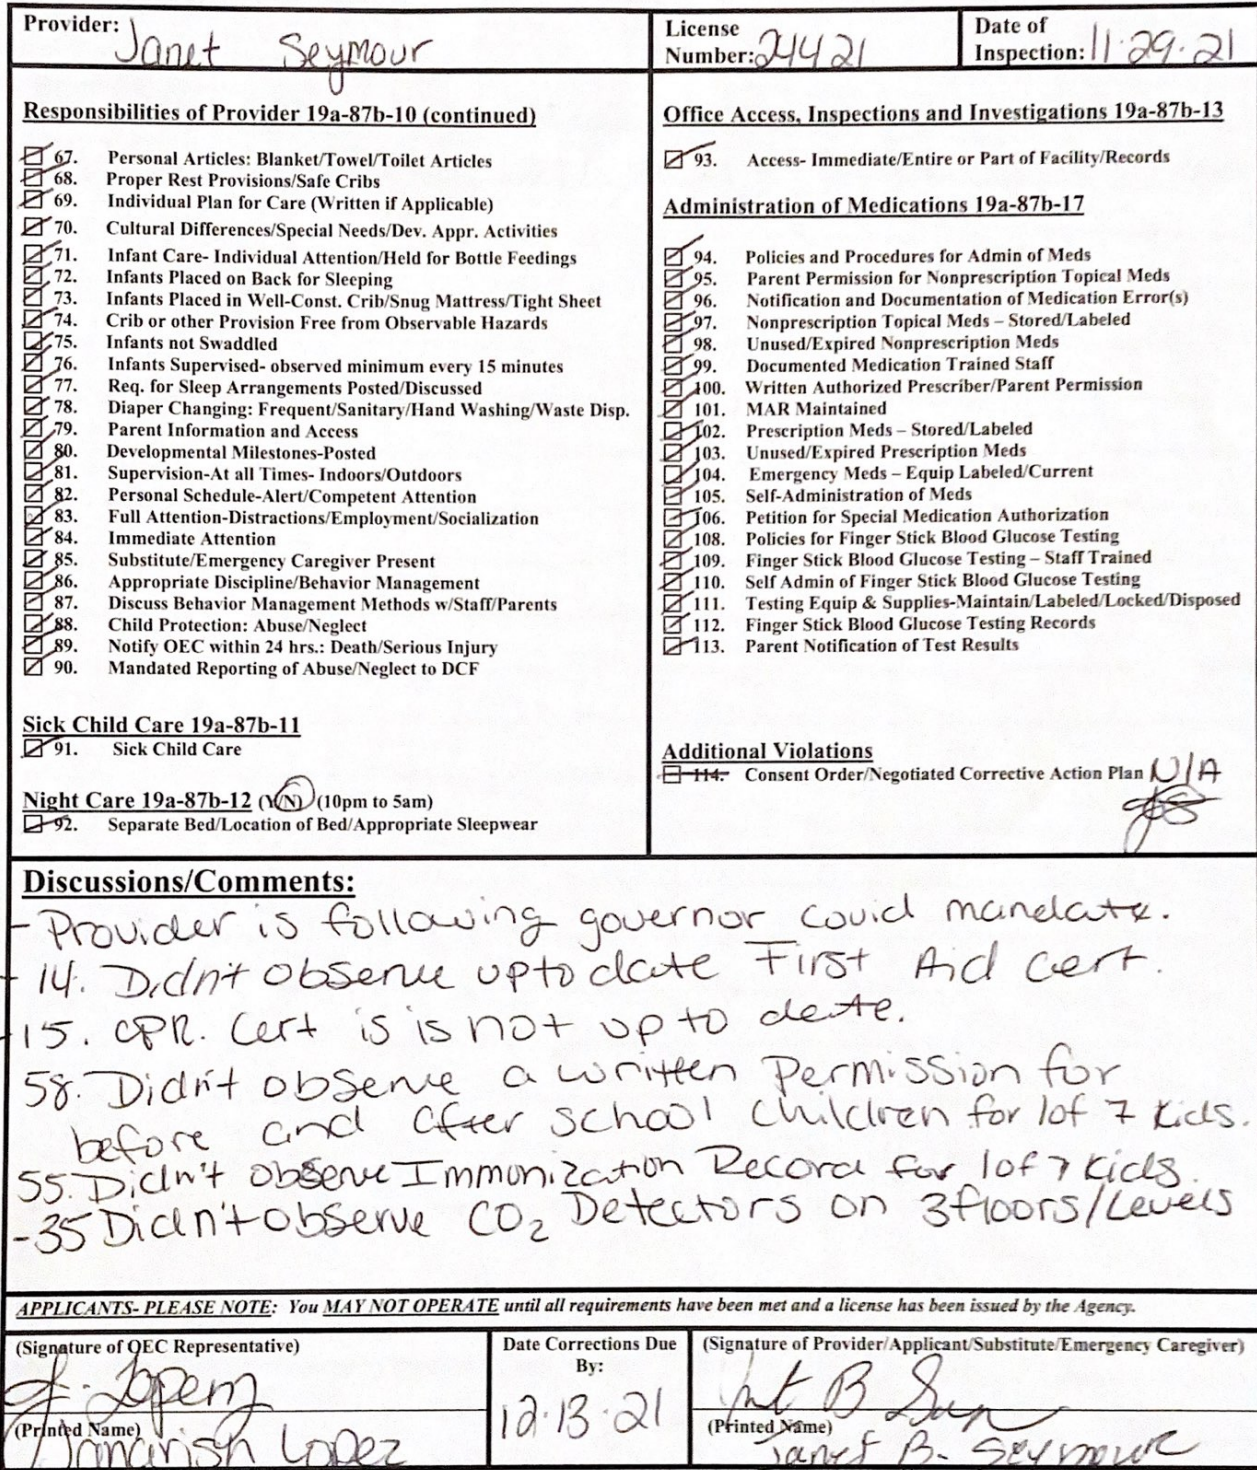 Provider: Janet Seymour
License Number: 24421
Date of Inspection: 11·29·21
Responsibilities of Provider 19a-87b-10 (continued)
67. Personal Articles: Blanket/Towel/Toilet Articles
68. Proper Rest Provisions/Safe Cribs
69. Individual Plan for Care (Written if Applicable)
70. Cultural Differences/Special Needs/Dev. Appr. Activities
71. Infant Care- Individual Attention/Held for Bottle Feedings
72. Infants Placed on Back for Sleeping
73. Infants Placed in Well-Const. Crib/Snug Mattress/Tight Sheet
74. Crib or other Provision Free from Observable Hazards
75. Infants not Swaddled
76. Infants Supervised- observed minimum every 15 minutes
77. Req. for Sleep Arrangements Posted/Discussed
78. Diaper Changing: Frequent/Sanitary/Hand Washing/Waste Disp.
79. Parent Information and Access
80. Developmental Milestones-Posted
81. Supervision-At all Times- Indoors/Outdoors
82. Personal Schedule-Alert/Competent Attention
83. Full Attention-Distractions/Employment/Socialization
84. Immediate Attention
85. Substitute/Emergency Caregiver Present
86. Appropriate Discipline/Behavior Management
87. Discuss Behavior Management Methods w/Staff/Parents
88. Child Protection: Abuse/Neglect
89. Notify OEC within 24 hrs.: Death/Serious Injury
90. Mandated Reporting of Abuse/Neglect to DCF
Sick Child Care 19a-87b-11
91. Sick Child Care
Night Care 19a-87b-12 (Y/N) (10pm to 5am)
92. Separate Bed/Location of Bed/Appropriate Sleepwear
Office Access, Inspections and Investigations 19a-87b-13
93. Access- Immediate/Entire or Part of Facility/Records
Administration of Medications 19a-87b-17
94. Policies and Procedures for Admin of Meds
95. Parent Permission for Nonprescription Topical Meds
96. Notification and Documentation of Medication Error(s)
97. Nonprescription Topical Meds – Stored/Labeled
98. Unused/Expired Nonprescription Meds
99. Documented Medication Trained Staff
100. Written Authorized Prescriber/Parent Permission
101. MAR Maintained
102. Prescription Meds – Stored/Labeled
103. Unused/Expired Prescription Meds
104. Emergency Meds – Equip Labeled/Current
105. Self-Administration of Meds
106. Petition for Special Medication Authorization
108. Policies for Finger Stick Blood Glucose Testing
109. Finger Stick Blood Glucose Testing – Staff Trained
110. Self Admin of Finger Stick Blood Glucose Testing
111. Testing Equip & Supplies-Maintain/Labeled/Locked/Disposed
112. Finger Stick Blood Glucose Testing Records
113. Parent Notification of Test Results
Additional Violations
114. Consent Order/Negotiated Corrective Action Plan N/A
Discussions/Comments:
- Provider is following governor covid mandate.
- 14. Didn't observe up to date First Aid cert.
- 15. CPR. Cert is is not up to date.
58. Didn't observe a written Permission for
before and after school children for 1 of 7 kids.
55. Didn't observe Immunization Record for 1 of 7 kids.
- 35 Didn't observe CO2 Detectors on 3 floors/Levels
APPLICANTS- PLEASE NOTE: You MAY NOT OPERATE until all requirements have been met and a license has been issued by the Agency.
(Signature of OEC Representative)
J. Lopez
(Printed Name)
Lopez
Date Corrections Due
By:
12·13·21
(Signature of Provider/Applicant/Substitute/Emergency Caregiver)
(Printed Name)
Janet B. Seymour